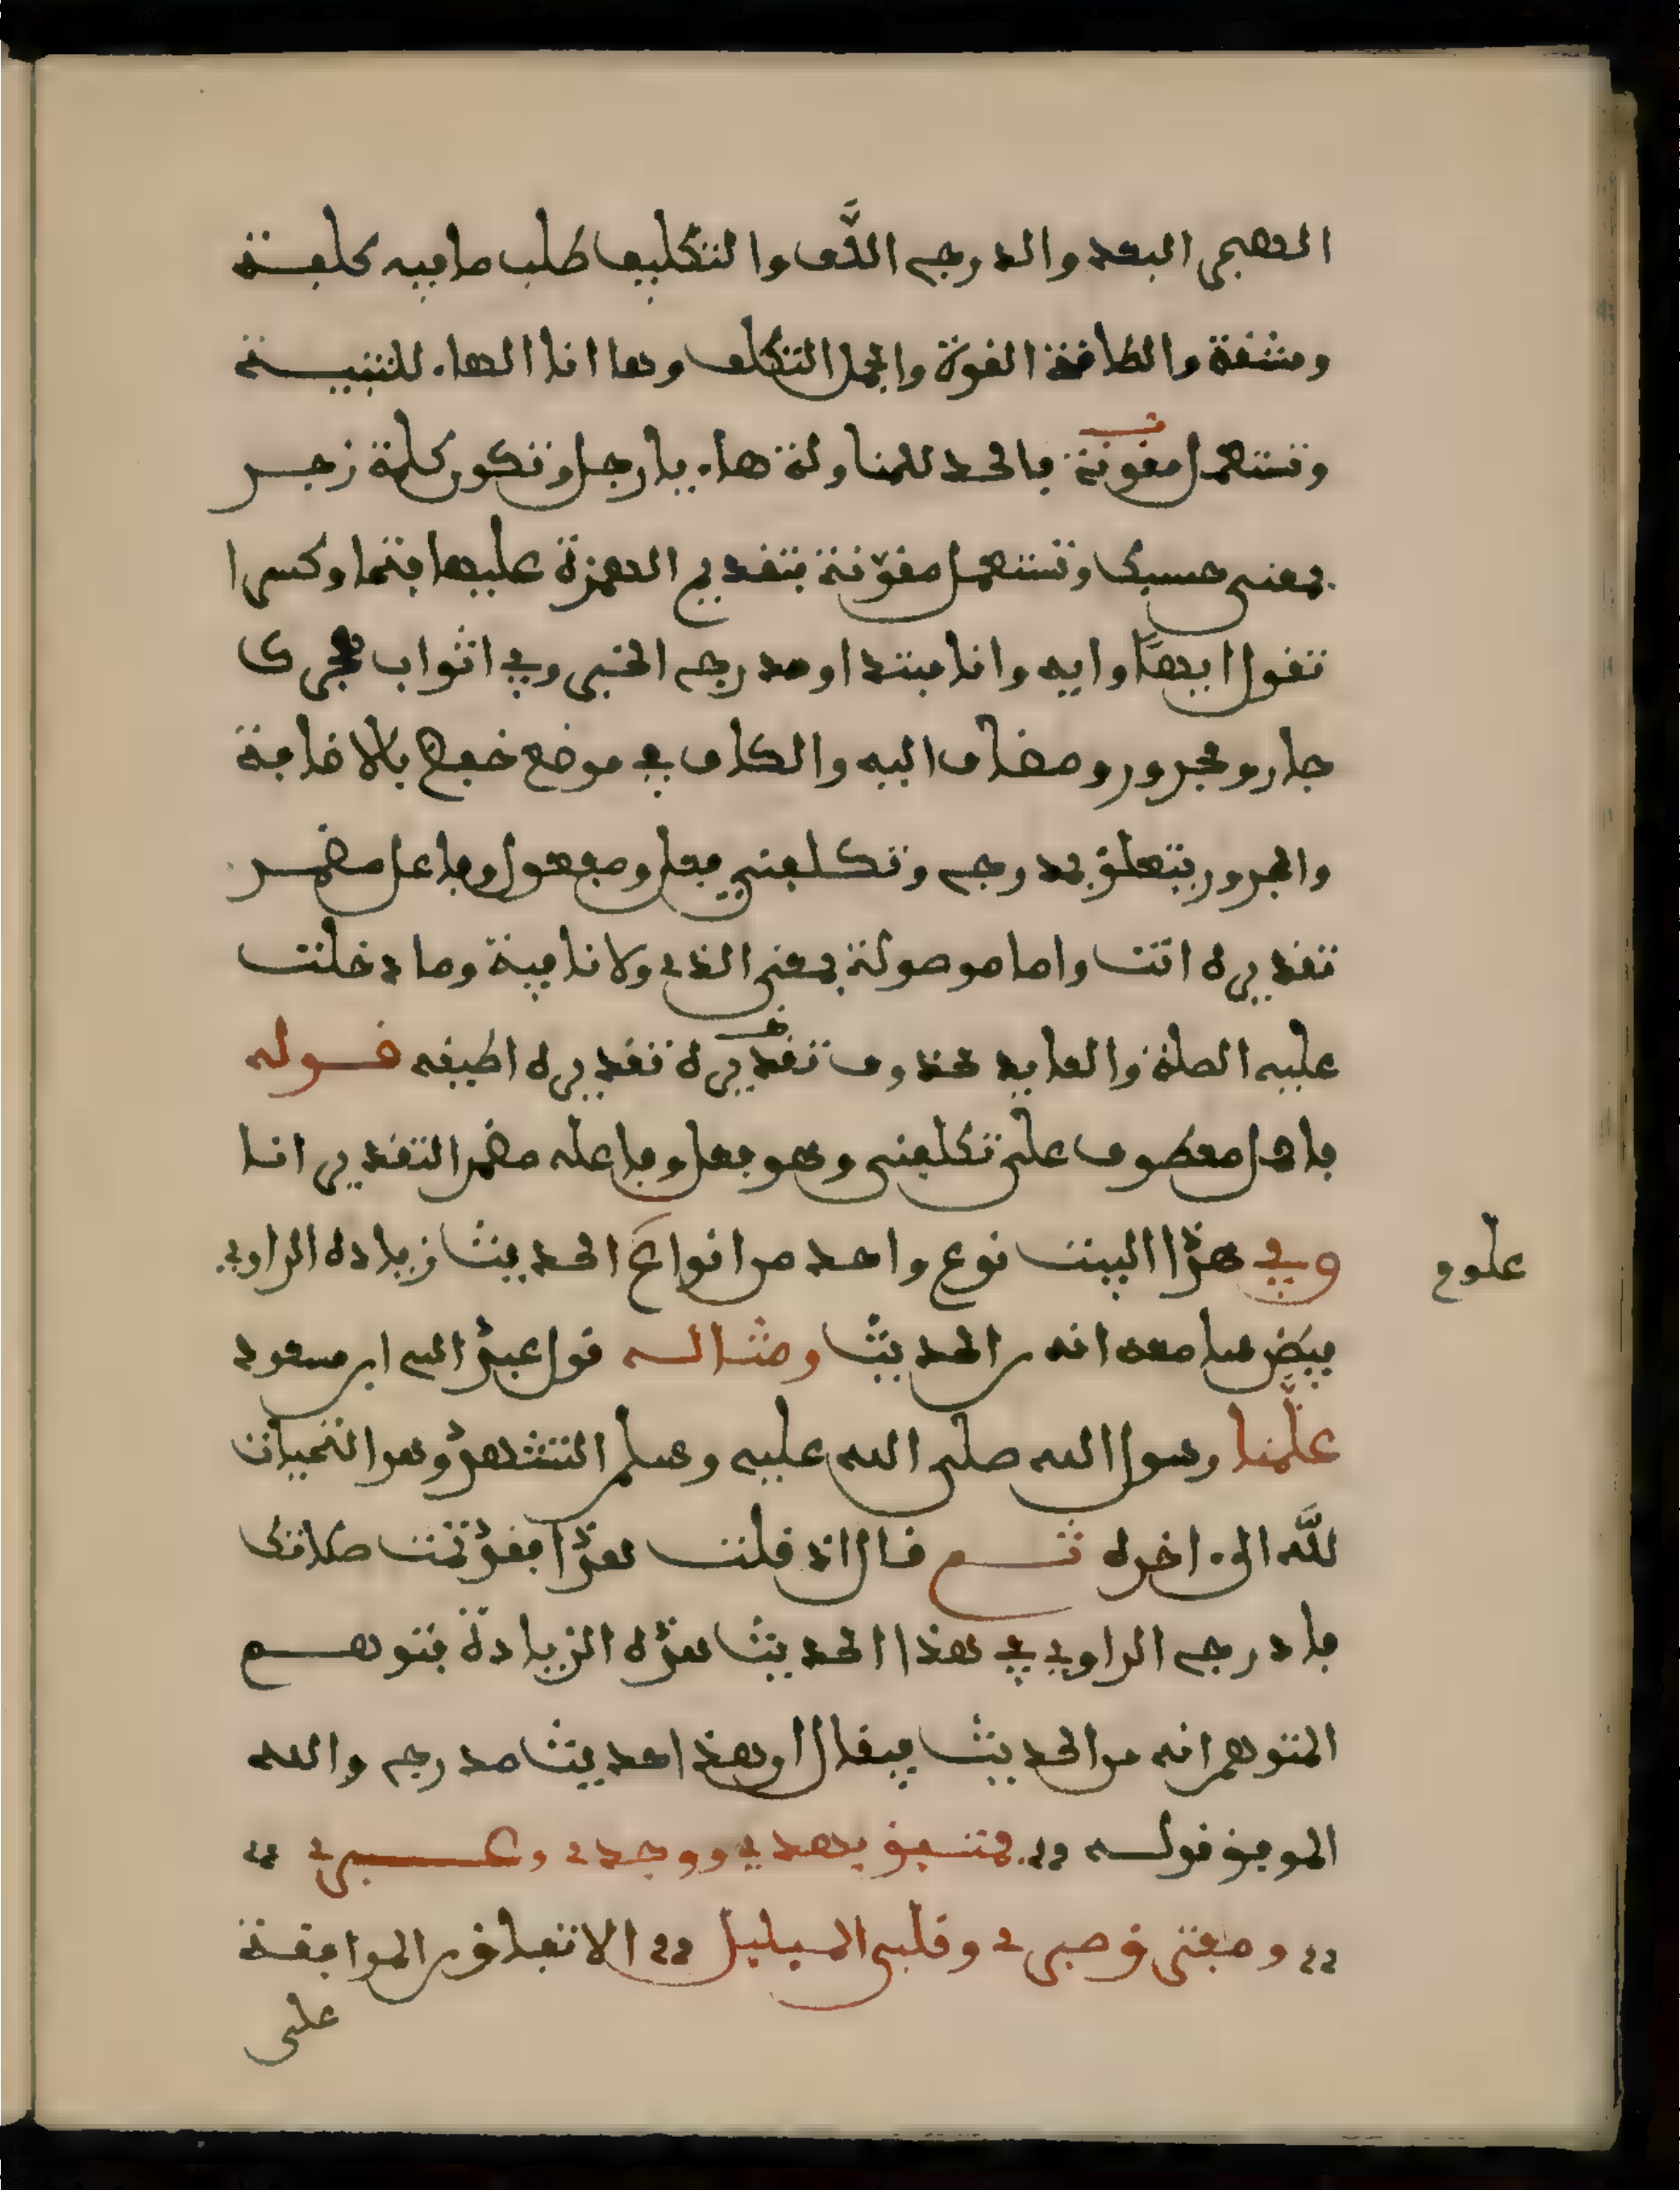 الهجر البعد والدرج اللَّف والتكليف طلب ما فيه كلفة
ومشقة والطاقة القوة والحمل التكلف وها انا الهاء للتنبيه
وتستعمل مقونة بالحد للمناولة هاء يا رجل وتكون كلمة زجر
بمعنى حسبك وتستعمل مقوّنة بتقديم الهمزة عليها فتحا وكسرا
تقول ايهًا وايه وانا مبتدا ومدرج الخبر وفي اثواب هجرك
جار ومجرور ومضاف اليه والكاف في موضع خفض بالاضافة
والمجرور يتعلق بمدرج وتكلفني فعل ومفعول وفاعل مضمر
تقديره انت واما موصولة بمعنى الذي ولا نافية وما دخلت
عليه الصلة والعايد محذوف تقديره تقديره اطيقه قوله
فاحمل معطوف على تكلفني وهو فعل وفاعله مضمر التقدير انا
وفي هذا البيت نوع واحد من انواع الحديث زيادة الراوي
علوم
فيظن سامعه انه من الحديث ومثاله قول عبد الله ابن مسعود
علَّمنا رسول الله صلى الله عليه وسلم التشهد وهو التحيات
للَّه الى اخره ثم قال اذ قلت هذا فقد تمت صلاتك
فادرج الراوي في هذا الحديث هذه الزيادة فتوهم
المتوهم انه من الحديث فيقال وهذا حديث مدرج والله
الموفق قوله فمتفق جهدي ووجدي وعبرتي
ومفترق صبري وقلبي المبلبل الانفاق من الموافقة
على